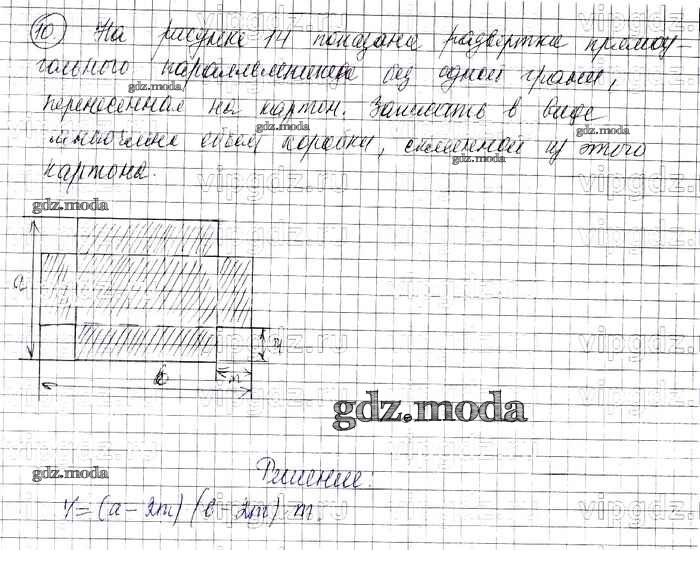 10) На рисунке 14 показана развертка прямоу-
гольного параллелепипеда без одной грани,
gdz.moda
перенесенная на картон. Записать в виде
gdz.moda
многочлена объем коробки, склеенной из этого
gdz.moda
картона.
vipgdz.ru
gdz.moda
a
m
b
m
gdz.moda
Решение:
gdz.moda
V=(a-2m)(b-2m)·m.